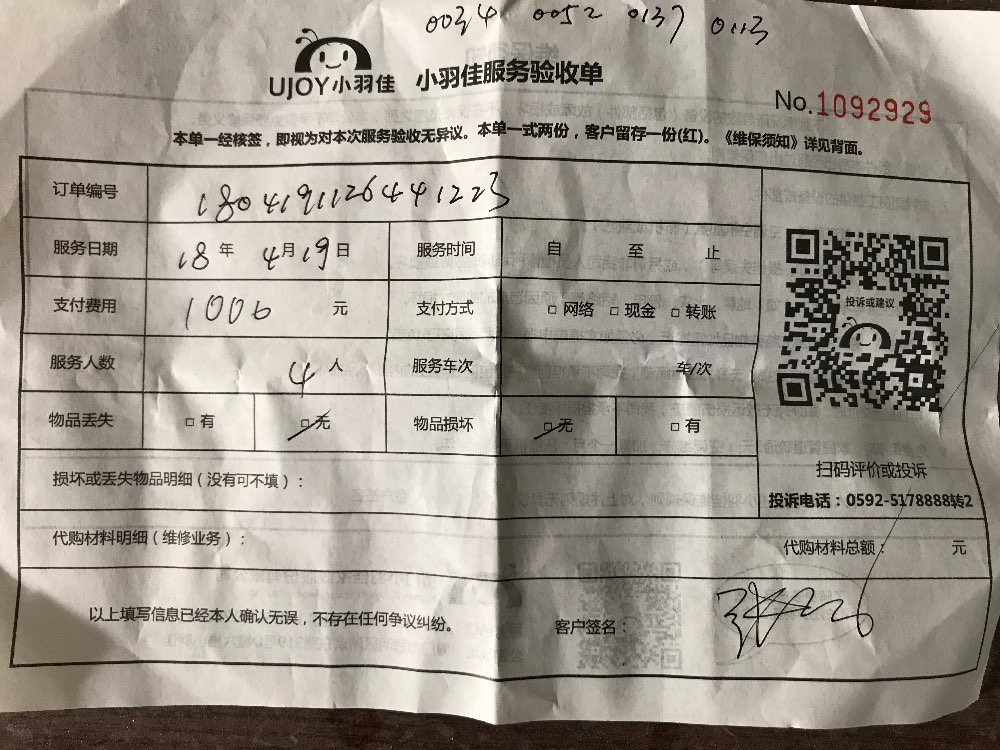 0034 0052 0137 0113
UJOY小羽佳 小羽佳服务验收单
No.1092929
本单一经核签，即视为对本次服务验收无异议。本单一式两份，客户留存一份(红)。《维保须知》详见背面。
订单编号 1804191126441223
服务日期 18年 4月19日 服务时间 自 至 止
投诉或建议
支付费用 1006 元 支付方式 □ 网络 □ 现金 □ 转账
服务人数 4人 服务车次 车/次
物品丢失 □ 有 □ 无 物品损坏 □ 无 □ 有
扫码评价或投诉
损坏或丢失物品明细（没有可不填）：
投诉电话：0592-5178888转2
代购材料明细（维修业务）： 代购材料总额： 元
以上填写信息已经本人确认无误，不存在任何争议纠纷。 客户签名：